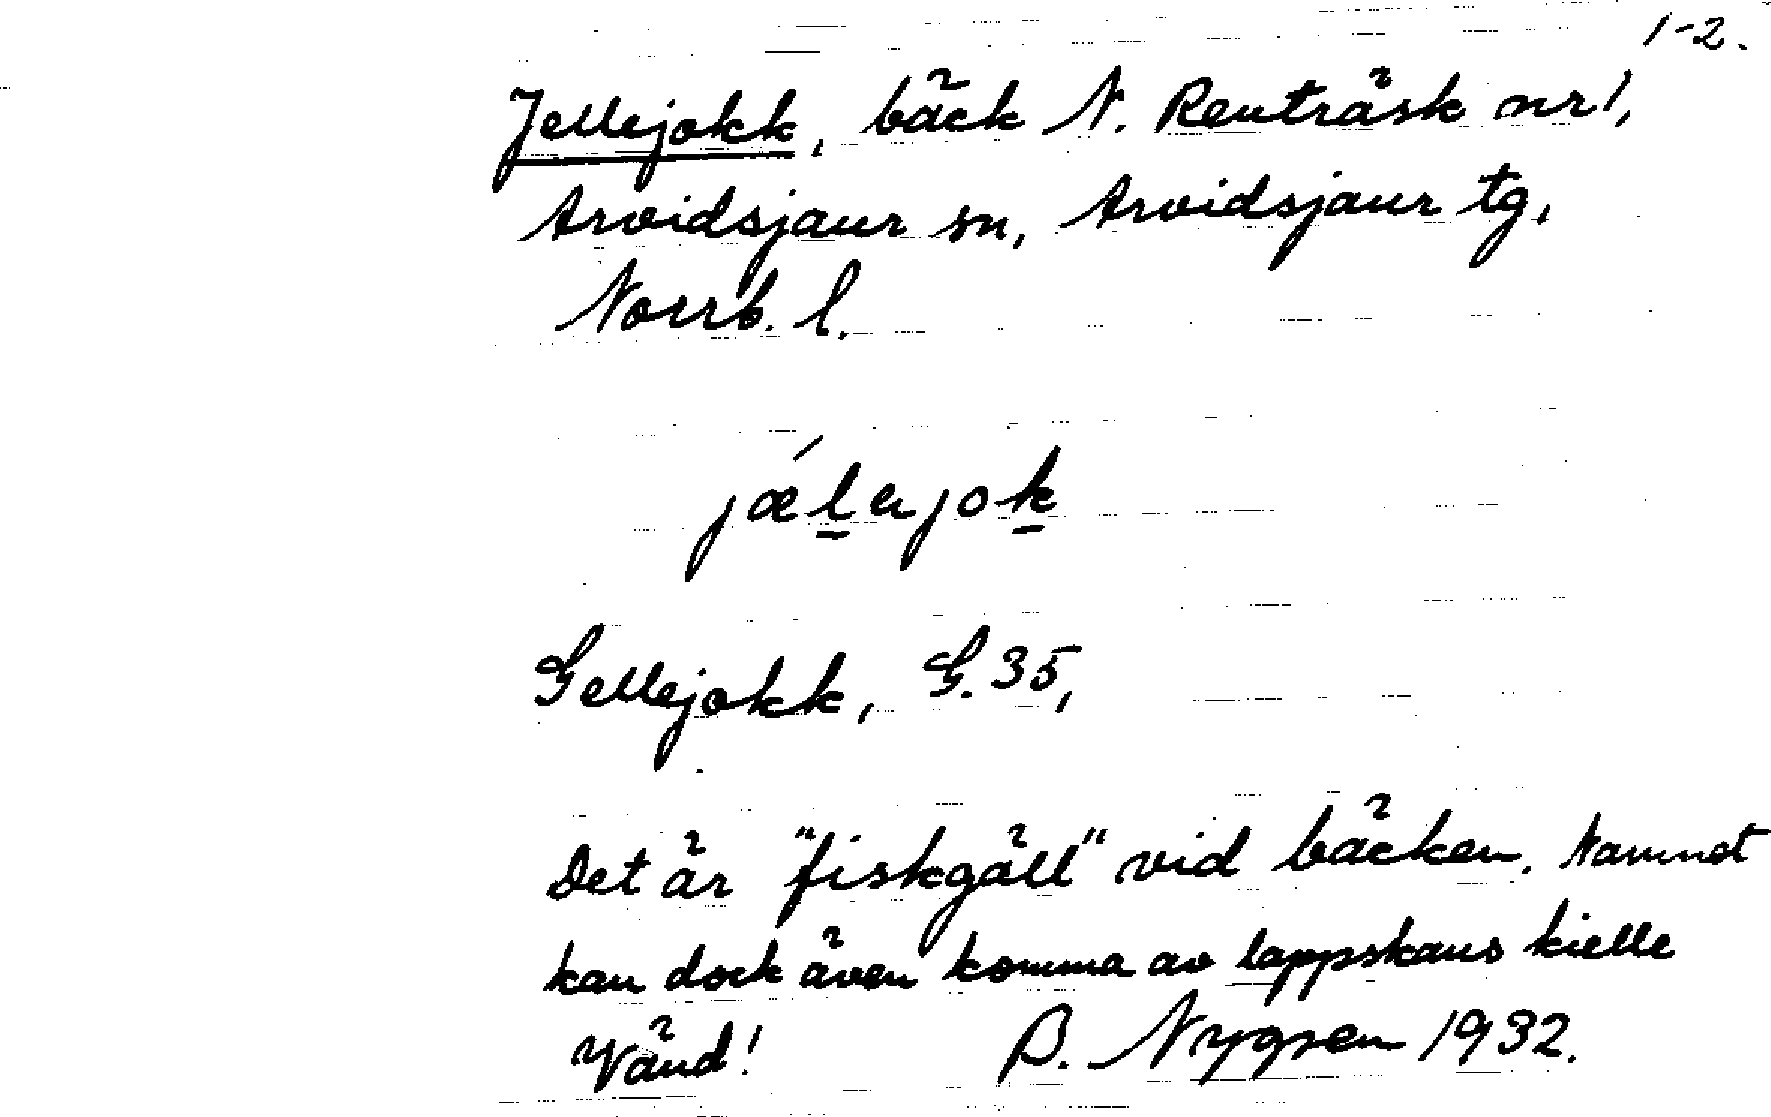 1-2.
Jellejokk, bäck N. Renträsk nr 1,
Arvidsjaur sn, Arvidsjaur tg,
Norrb. l.
jǽlajok
Gellejokk, G. 35,
Det är "fiskgäll" vid bäcken. Namnet
kan dock även komma av lappskans kielle
Vänd! B. Nygren 1932.